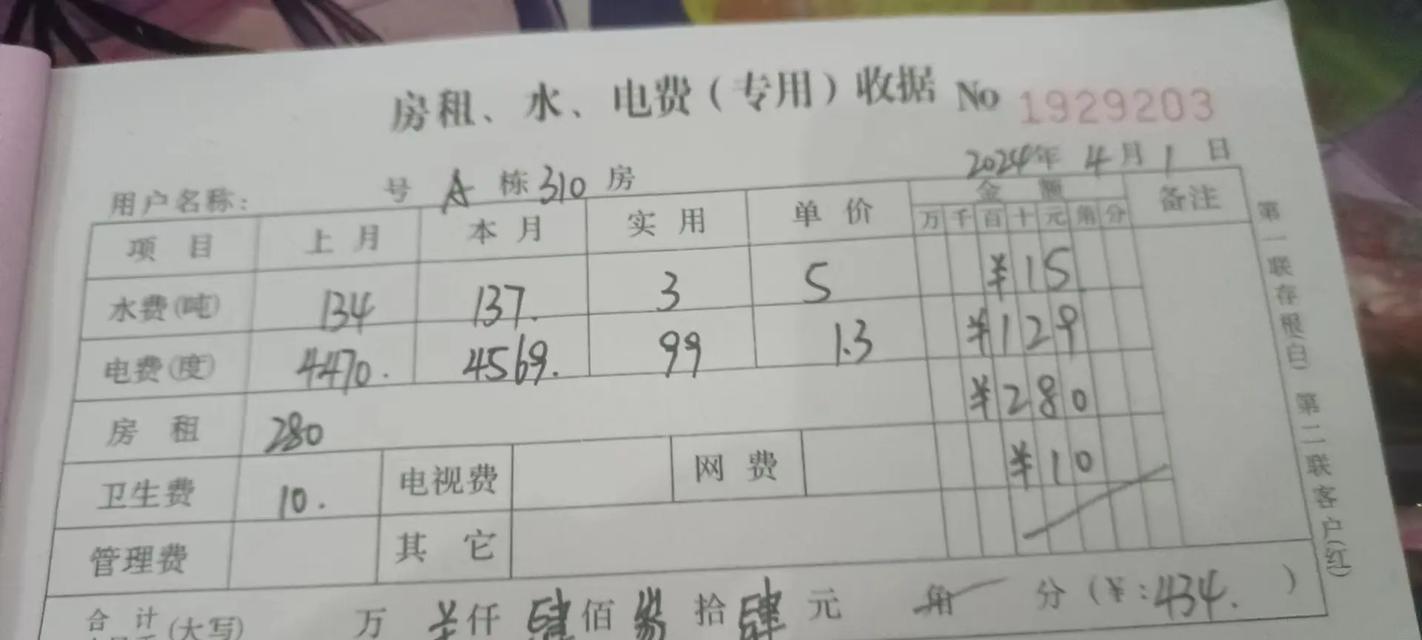 房租、水、电费（专用）收据 No 1929203
用户名称： 号 A 栋 310 房 2024年 4月 1日
项目 上月 本月 实用 单价 金额 备注
万 千 百 十 元 角 分
水费(吨) 134 137. 3 5 ¥15
电费(度) 4470. 4569. 99 1.3 ¥129
房租 280 ¥280
卫生费 10. 电视费 网费 ¥10
管理费 其它
合计 (大写) 万 仟 肆 佰 叁 拾 肆 元 角 分 (¥:434. )
第一联存根(白) 第二联客户(红)